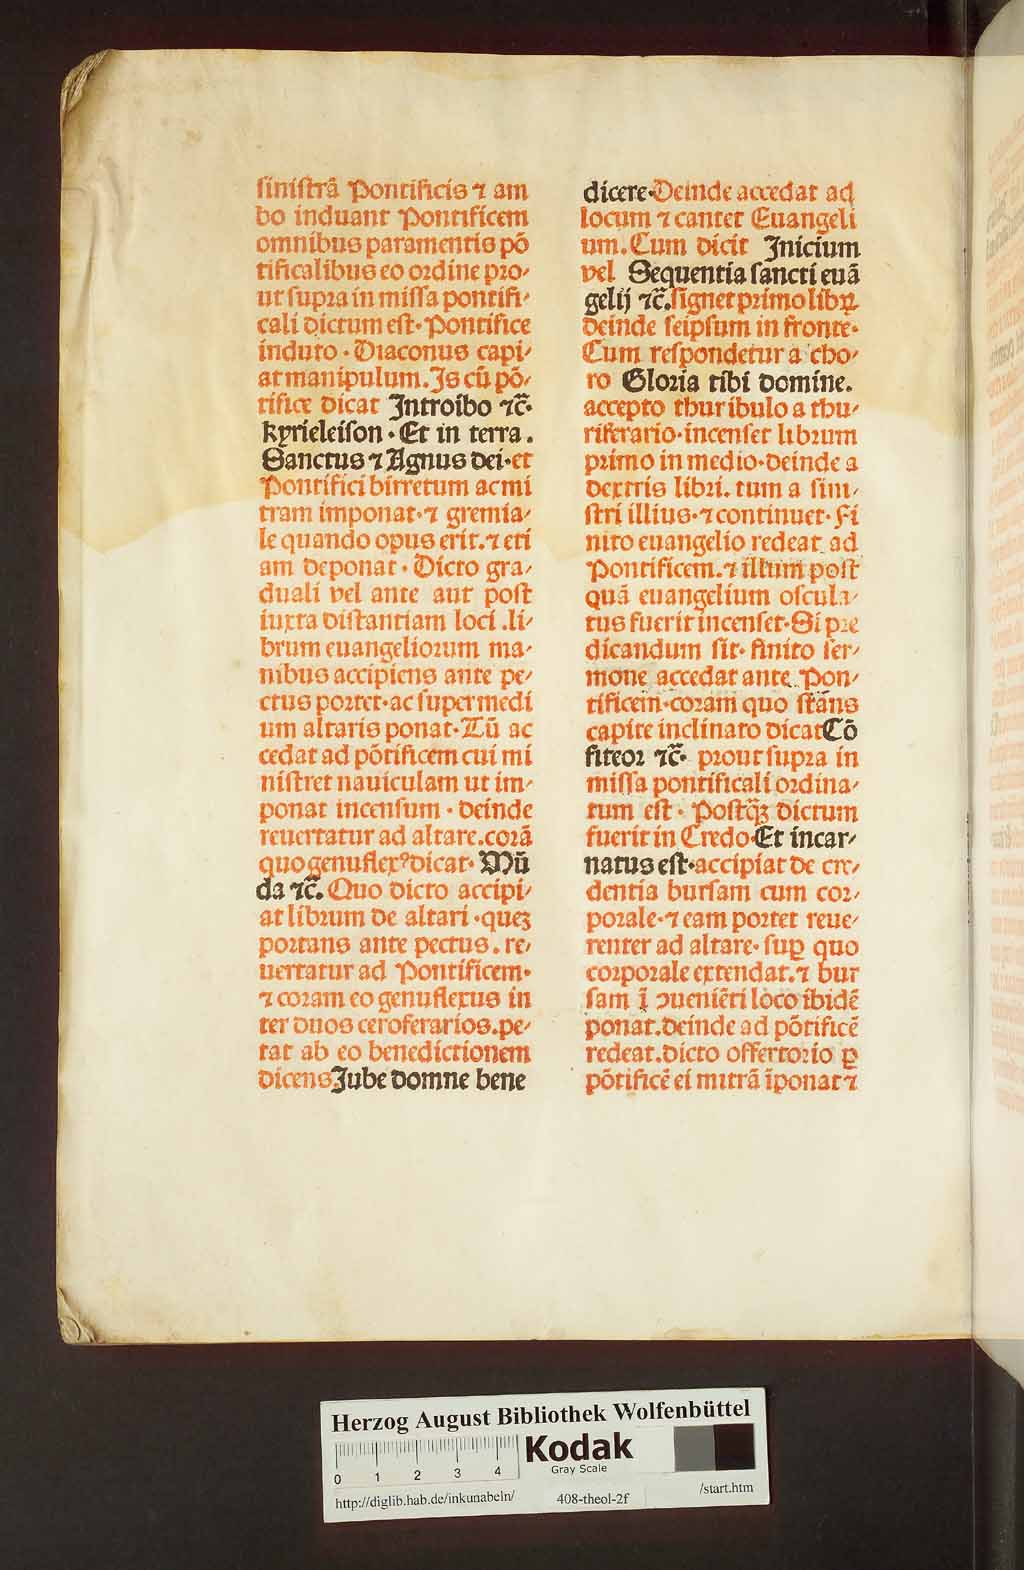 sinistrā Pontificis ⁊ am
bo induant Pontificem
omnibus paramentis pō
tificalibus eo ordine pro-
ut supra in missa pontifi-
cali dictum est. Pontifice
induto. Diaconus capi-
at manipulum. Is cū pō-
tifice dicat Introibo ⁊c̄.
kyrieleison. Et in terra.
Sanctus ⁊ Agnus dei. et
Pontifici birretum ac mi
tram imponat. ⁊ gremia-
le quando opus erit. ⁊ eti
am deponat. Dicto gra-
duali vel ante aut post
iuxta distantiam loci. li-
brum euangeliorum ma-
nibus accipiens ante pe-
ctus portet. ac super medi
um altaris ponat. Tū ac
cedat ad pōtificem cui mi
nistret nauiculam ut im-
ponat incensum. deinde
reuertatur ad altare. corā
quo genuflexꝰ dicat. Mū
da ⁊c̄. Quo dicto accipi-
at librum de altari. queʒ
portans ante pectus. re-
uertatur ad Pontificem.
⁊ coram eo genuflexus in
ter duos ceroferarios. pe-
tat ab eo benedictionem
dicens. Jube domne bene
dicere. Deinde accedat ad
locum ⁊ cantet Euangeli
um. Cum dicit Inicium
vel Sequentia sancti euā
gelij ⁊c̄. signet primo libꝝ
deinde seipsum in fronte.
Cum respondetur a cho-
ro Gloria tibi domine.
accepto thuribulo a thu-
riferario. incenset librum
primo in medio. deinde a
dextris libri. tum a sini-
stri illius. ⁊ continuet. Fi
nito euangelio redeat ad
Pontificem. ⁊ illum post
quā euangelium oscula-
tus fuerit incenset. Si pre
dicandum sit. finito ser-
mone accedat ante Pon-
tificem. coram quo stans
capite inclinato dicat Cō
fiteor ⁊c̄. prout supra in
missa pontificali ordina-
tum est. Postq̄ʒ dictum
fuerit in Credo. Et incar-
natus est. accipiat de cre-
dentia bursam cum cor-
porale. ⁊ eam portet reue-
renter ad altare. suꝑ quo
corporale extendat. ⁊ bur
sam ī ↄueniēti loco ibidē
ponat. deinde ad pōtificē
redeat. dicto offertorio ꝑ
pōtificē ei mitrā īponat ⁊
Herzog August Bibliothek Wolfenbüttel
Kodak
Gray Scale
0 1 2 3 4
http://diglib.hab.de/inkunabeln/ 408-theol-2f /start.htm